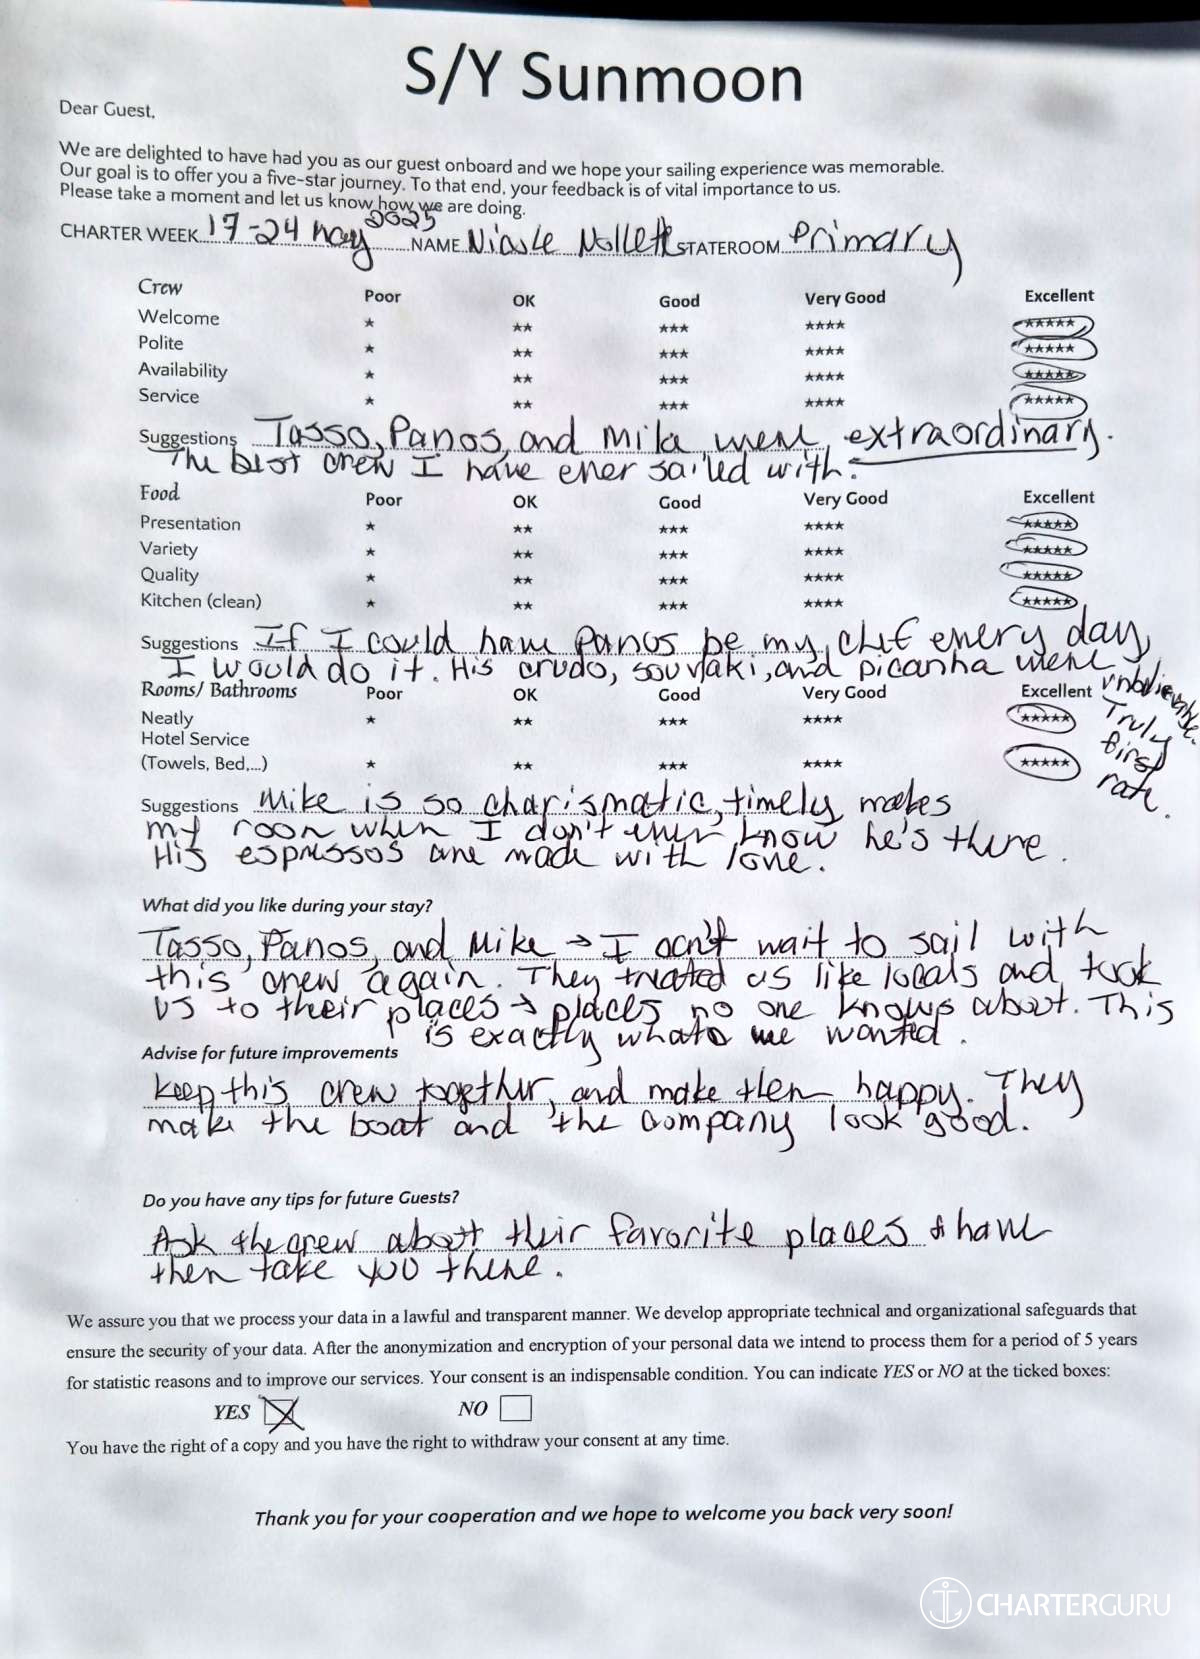 S/Y Sunmoon
Dear Guest,
We are delighted to have had you as our guest onboard and we hope your sailing experience was memorable.
Our goal is to offer you a five-star journey. To that end, your feedback is of vital importance to us.
Please take a moment and let us know how we are doing.
CHARTER WEEK 17-24 May 2025 NAME Nicole STATEROOM Primary
Crew Poor OK Good Very Good Excellent
Welcome ★ ★★ ★★★ ★★★★ ★★★★★
Polite ★ ★★ ★★★ ★★★★ ★★★★★
Availability ★ ★★ ★★★ ★★★★ ★★★★★
Service ★ ★★ ★★★ ★★★★ ★★★★★
Suggestions Tasso, Panos, and Mike were extraordinary.
The best crew I have ever sailed with.
Food Poor OK Good Very Good Excellent
Presentation ★ ★★ ★★★ ★★★★ ★★★★★
Variety ★ ★★ ★★★ ★★★★ ★★★★★
Quality ★ ★★ ★★★ ★★★★ ★★★★★
Kitchen (clean) ★ ★★ ★★★ ★★★★ ★★★★★
Suggestions If I could have Panos be my chef every day,
I would do it. His crudo, souvlaki, and picanha were
unbelievable.
Truly
first
rate.
Rooms/ Bathrooms Poor OK Good Very Good Excellent
Neatly ★ ★★ ★★★ ★★★★ ★★★★★
Hotel Service
(Towels, Bed,...) ★ ★★ ★★★ ★★★★ ★★★★★
Suggestions Mike is so charismatic, timely, makes
my room when I don't even know he's there.
His espressos are made with love.
What did you like during your stay?
Tasso, Panos, and Mike → I can't wait to sail with
this crew again. They treated us like locals and took
us to their places → places no one knows about. This
is exactly what we wanted.
Advise for future improvements
Keep this crew together, and make them happy. They
make the boat and the company look good.
Do you have any tips for future Guests?
Ask the crew about their favorite places & have
them take you there.
We assure you that we process your data in a lawful and transparent manner. We develop appropriate technical and organizational safeguards that
ensure the security of your data. After the anonymization and encryption of your personal data we intend to process them for a period of 5 years
for statistic reasons and to improve our services. Your consent is an indispensable condition. You can indicate YES or NO at the ticked boxes:
YES NO
You have the right of a copy and you have the right to withdraw your consent at any time.
Thank you for your cooperation and we hope to welcome you back very soon!
CHARTERGURU